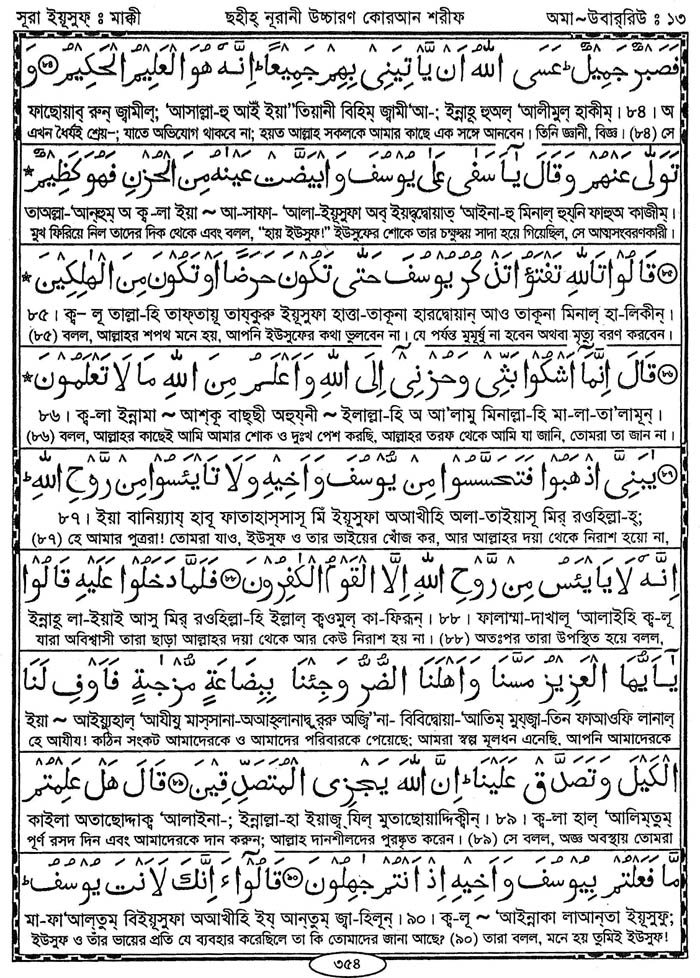 সূরা ইয়ূসুফ্ ঃ মাক্কী ছহীহ্ নূরানী উচ্চারণ কোরআন শরীফ অমা~উবার্‌রিউ ঃ ১৩
فَصَبْرٌ جَمِيلٌ ۖ عَسَى اللَّهُ أَنْ يَأْتِيَنِي بِهِمْ جَمِيعًا ۚ إِنَّهُ هُوَ الْعَلِيمُ الْحَكِيمُ ۝৮৪ وَ
ফাছোয়াব্ রুন্ জ্বামীল্; 'আসাল্লা-হু আইঁ ইয়া''তিয়ানী বিহিম্ জ্বামী'আ-; ইন্নাহূ হুঅল্ 'আলীমুল্ হাকীম্। ৮৪। অ
এখন ধৈর্যই শ্রেয়–; যাতে অভিযোগ থাকবে না; হয়ত আল্লাহ সকলকে আমার কাছে এক সঙ্গে আনবেন। তিনি জ্ঞানী, বিজ্ঞ। (৮৪) সে
تَوَلَّى عَنْهُمْ وَقَالَ يَا أَسَفَى عَلَى يُوسُفَ وَابْيَضَّتْ عَيْنَاهُ مِنَ الْحُزْنِ فَهُوَ كَظِيمٌ *
তাঅল্লা-'আন্‌হুম্ অ ক্ব-লা ইয়া ~ আ-সাফা- 'আলা-ইয়ূসুফা অব্ ইয়দ্বদ্বোয়াত্ 'আইনা-হু মিনাল্ হুয্‌নি ফাহুঅ কাজীম্।
মুখ ফিরিয়ে নিল তাদের দিক থেকে এবং বলল, "হায় ইউসুফ!" ইউসুফের শোকে তার চক্ষুদ্বয় সাদা হয়ে গিয়েছিল, সে আত্মসংবরণকারী।
۝৮৫ قَالُوا تَاللَّهِ تَفْتَؤُا تَذْكُرُ يُوسُفَ حَتَّى تَكُونَ حَرَضًا أَوْ تَكُونَ مِنَ الْهَالِكِينَ *
৮৫। ক্ব- লূ তাল্লা-হি তাফ্‌তায়ূ তায্‌কুরু ইয়ূসুফা হাত্তা-তাকূনা হারদ্বোয়ান্ আও তাকূনা মিনাল্ হা-লিকীন্।
(৮৫) বলল, আল্লাহর শপথ মনে হয়, আপনি ইউসুফের কথা ভুলবেন না। যে পর্যন্ত মুমূর্ষু না হবেন অথবা মৃত্যু বরণ করবেন।
۝৮৬ قَالَ إِنَّمَا أَشْكُوا بَثِّي وَحُزْنِي إِلَى اللَّهِ وَأَعْلَمُ مِنَ اللَّهِ مَا لَا تَعْلَمُونَ *
৮৬। ক্ব-লা ইন্নামা ~ আশ্‌কূ বাছ্‌ছী অহুয্‌নী ~ ইলাল্লা-হি অ আ'লামু মিনাল্লা-হি মা-লা-তা'লামূন্।
(৮৬) বলল, আল্লাহর কাছেই আমি আমার শোক ও দুঃখ পেশ করছি, আল্লাহর তরফ থেকে আমি যা জানি, তোমরা তা জান না।
۝৮৭ يَبَنِيَّ اذْهَبُوا فَتَحَسَّسُوا مِنْ يُوسُفَ وَأَخِيهِ وَلَا تَايْئَسُوا مِنْ رَوْحِ اللَّهِ ۖ
৮৭। ইয়া বানিয়্যায্ হাবূ ফাতাহাস্‌সাসূ মিঁ ইয়ূসুফা অআখীহি অলা-তাইয়াসূ মির্ রওহিল্লা-হ্;
(৮৭) হে আমার পুত্ররা! তোমরা যাও, ইউসুফ ও তার ভাইয়ের খোঁজ কর, আর আল্লাহর দয়া থেকে নিরাশ হয়ো না,
إِنَّهُ لَا يَايْئَسُ مِنْ رَوْحِ اللَّهِ إِلَّا الْقَوْمُ الْكَافِرُونَ ۝৮৮ فَلَمَّا دَخَلُوا عَلَيْهِ قَالُوا
ইন্নাহূ লা-ইয়াই আসু মির্ রওহিল্লা-হি ইল্লাল্ ক্বওমুল্ কা-ফিরূন্। ৮৮। ফালাম্মা-দাখালূ 'আলাইহি ক্ব-লূ
যারা অবিশ্বাসী তারা ছাড়া আল্লাহর দয়া থেকে আর কেউ নিরাশ হয় না। (৮৮) অতঃপর তারা উপস্থিত হয়ে বলল,
يَا أَيُّهَا الْعَزِيزُ مَسَّنَا وَأَهْلَنَا الضُّرُّ وَجِئْنَا بِبِضَاعَةٍ مُزْجَاةٍ فَأَوْفِ لَنَا
ইয়া ~ আইয়্যুহাল্ 'আযীযু মাস্‌সানা-অআহ্‌লানাদ্ব্ দুর্‌রু অজ্বি''না- বিবিদ্বোয়া-'আতিম্ মুয্‌জ্বা-তিন ফাআওফি লানাল্
হে আযীয! কঠিন সংকট আমাদেরকে ও আমাদের পরিবারকে পেয়েছে; আমরা স্বল্প মূলধন এনেছি, আপনি আমাদেরকে
الْكَيْلَ وَتَصَدَّقْ عَلَيْنَا ۖ إِنَّ اللَّهَ يَجْزِي الْمُتَصَدِّقِينَ ۝৮৯ قَالَ هَلْ عَلِمْتُمْ
কাইলা অতাছোদ্দাক্ব্ 'আলাইনা-; ইন্নাল্লা-হা ইয়াজ্ব্ যিল্ মুতাছোয়াদ্দিক্বীন্। ৮৯। ক্ব-লা হাল্ 'আলিম্‌তুম্
পূর্ণ রসদ দিন এবং আমাদেরকে দান করুন; আল্লাহ দানশীলদের পুরষ্কৃত করেন। (৮৯) সে বলল, অজ্ঞ অবস্থায় তোমরা
مَا فَعَلْتُمْ بِيُوسُفَ وَأَخِيهِ إِذْ أَنْتُمْ جَاهِلُونَ ۝৯০ قَالُوا أَإِنَّكَ لَأَنْتَ يُوسُفُ ۖ
মা-ফা'আল্‌তুম্ বিইয়ূসুফা অআখীহি ইয্ আন্‌তুম্ জ্বা-হিলূন্। ৯০। ক্ব-লূ ~ 'আইন্নাকা লাআন্‌তা ইয়ূসুফু;
ইউসুফ ও তাঁর ভায়ের প্রতি যে ব্যবহার করেছিলে তা কি তোমাদের জানা আছে? (৯০) তারা বলল, মনে হয় তুমিই ইউসুফ!
৩৫৪